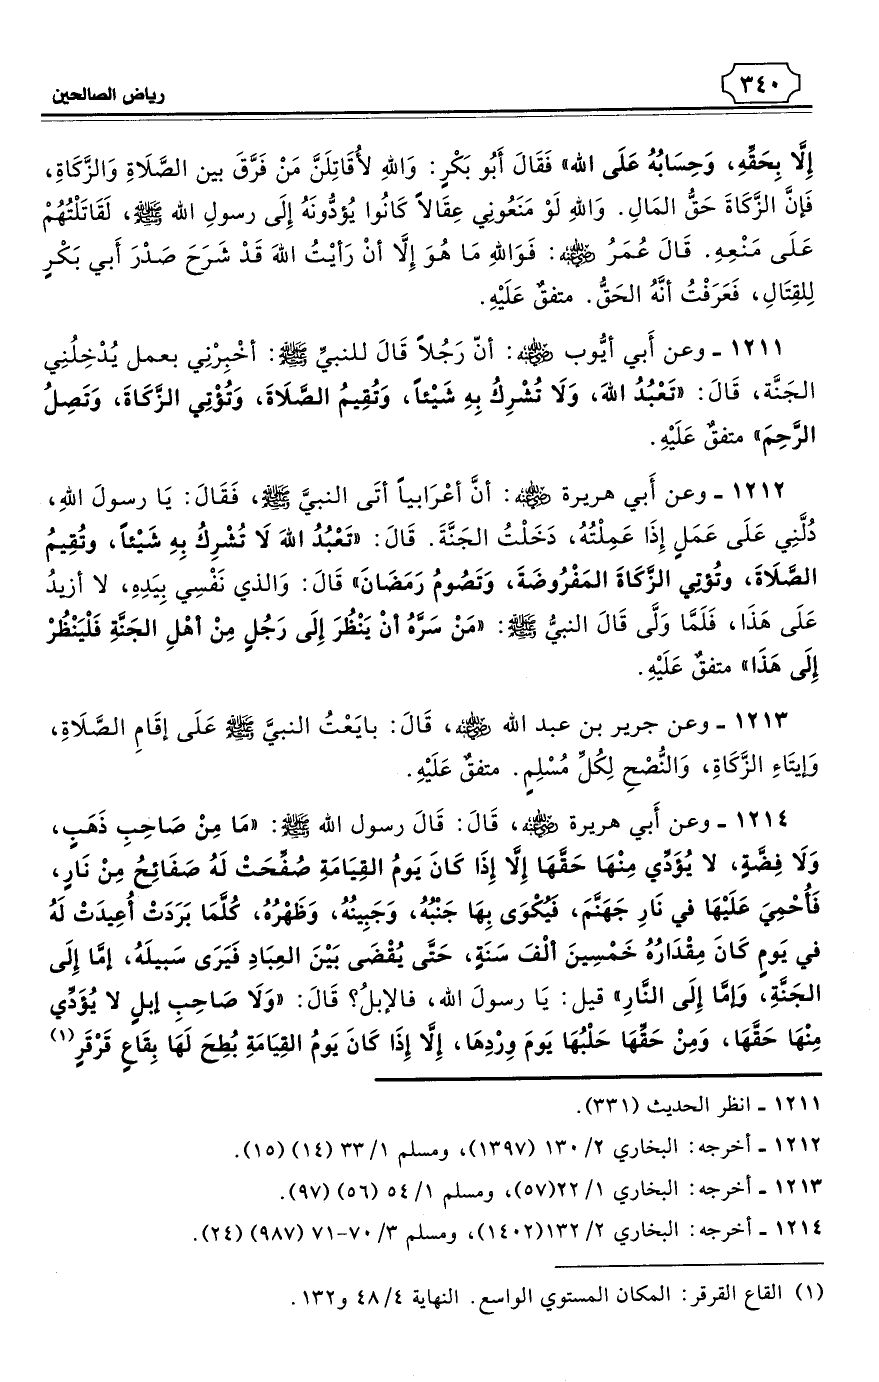 ٣٤٠
رياض الصالحين
إلَّا بِحَقِّهِ، وَحِسَابُهُ عَلَى الله» فَقَالَ أَبُو بَكْرٍ: وَاللهِ لأُقَاتِلَنَّ مَنْ فَرَّقَ بين الصَّلَاةِ وَالزَّكَاةِ،
فَإنَّ الزَّكَاةَ حَقُّ المَالِ. وَاللهِ لَوْ مَنَعُونِي عِقَالاً كَانُوا يُؤدُّونَهُ إلَى رسولِ الله ﷺ، لَقَاتَلْتُهُمْ
عَلَى مَنْعِهِ. قَالَ عُمَرُ رضي الله عنه: فَوَاللهِ مَا هُوَ إلَّا أنْ رَأيْتُ اللهَ قَدْ شَرَحَ صَدْرَ أَبي بَكْرٍ
لِلقِتَالِ، فَعَرَفْتُ أنَّهُ الحَقُّ. متفقٌ عَلَيْهِ.
١٢١١ ـ وعن أَبي أيُّوب رضي الله عنه: أنّ رَجُلاً قَالَ للنبيِّ ﷺ: أخْبِرْنِي بعمل يُدْخِلُنِي
الجَنَّة، قَالَ: «تَعْبُدُ اللهَ، وَلَا تُشْرِكُ بِهِ شَيْئاً، وَتُقِيمُ الصَّلَاةَ، وَتُؤْتِي الزَّكَاةَ، وَتَصِلُ
الرَّحِمَ» متفقٌ عَلَيْهِ.
١٢١٢ ـ وعن أَبي هريرة رضي الله عنه: أنَّ أعْرَابياً أتَى النبيَّ ﷺ، فَقَالَ: يَا رسولَ اللهِ،
دُلَّنِي عَلَى عَمَلٍ إذَا عَمِلْتُهُ، دَخَلْتُ الجَنَّةَ. قَالَ: «تَعْبُدُ اللهَ لَا تُشْرِكُ بِهِ شَيْئاً، وتُقِيمُ
الصَّلَاةَ، وتُؤتِي الزَّكَاةَ المَفْرُوضَةَ، وَتَصُومُ رَمَضَانَ» قَالَ: وَالذي نَفْسِي بِيَدِهِ، لا أزيدُ
عَلَى هَذَا، فَلَمَّا وَلَّى قَالَ النبيُّ ﷺ: «مَنْ سَرَّهُ أنْ يَنْظُرَ إلَى رَجُلٍ مِنْ أهْلِ الجَنَّةِ فَلْيَنْظُرْ
إلَى هَذَا» متفقٌ عَلَيْهِ.
١٢١٣ ـ وعن جرير بن عبد الله رضي الله عنه، قَالَ: بايَعْتُ النبيَّ ﷺ عَلَى إقَامِ الصَّلَاةِ،
وَإيتَاءِ الزَّكَاةِ، وَالنُّصْحِ لِكُلِّ مُسْلِمٍ. متفقٌ عَلَيْهِ.
١٢١٤ ـ وعن أَبي هريرة رضي الله عنه، قَالَ: قَالَ رسول الله ﷺ: «مَا مِنْ صَاحِبِ ذَهَبٍ،
وَلَا فِضَّةٍ، لا يُؤَدِّي مِنْهَا حَقَّهَا إلَّا إذَا كَانَ يَومُ القِيَامَةِ صُفِّحَتْ لَهُ صَفَائِحُ مِنْ نَارٍ،
فَأُحْمِيَ عَلَيْهَا في نَارِ جَهَنَّمَ، فَيُكْوَى بِهَا جَنْبُهُ، وَجَبِينُهُ، وَظَهْرُهُ، كُلَّمَا بَرَدَتْ أُعِيدَتْ لَهُ
في يَومٍ كَانَ مِقْدَارُهُ خَمْسِينَ ألْفَ سَنَةٍ، حَتَّى يُقْضَى بَيْنَ العِبَادِ فَيَرَى سَبيلَهُ، إمَّا إلَى
الجَنَّةِ، وَإمَّا إلَى النَّارِ» قيل: يَا رسولَ الله، فالإبلُ؟ قَالَ: «وَلَا صَاحِبِ إبلٍ لا يُؤَدِّي
مِنْهَا حَقَّهَا، وَمِنْ حَقِّهَا حَلْبُهَا يَومَ وِرْدِهَا، إلَّا إذَا كَانَ يَومُ القِيَامَةِ بُطِحَ لَهَا بِقَاعٍ قَرْقَرٍ(١)
١٢١١ ـ انظر الحديث (٣٣١).
١٢١٢ ـ أخرجه: البخاري ٢/ ١٣٠ (١٣٩٧)، ومسلم ١/ ٣٣ (١٤) (١٥).
١٢١٣ ـ أخرجه: البخاري ١/ ٢٢(٥٧)، ومسلم ١/ ٥٤ (٥٦) (٩٧).
١٢١٤ ـ أخرجه: البخاري ٢/ ١٣٢(١٤٠٢)، ومسلم ٣/ ٧٠-٧١ (٩٨٧) (٢٤).
(١) القاع القرقر: المكان المستوي الواسع. النهاية ٤/ ٤٨ و١٣٢.